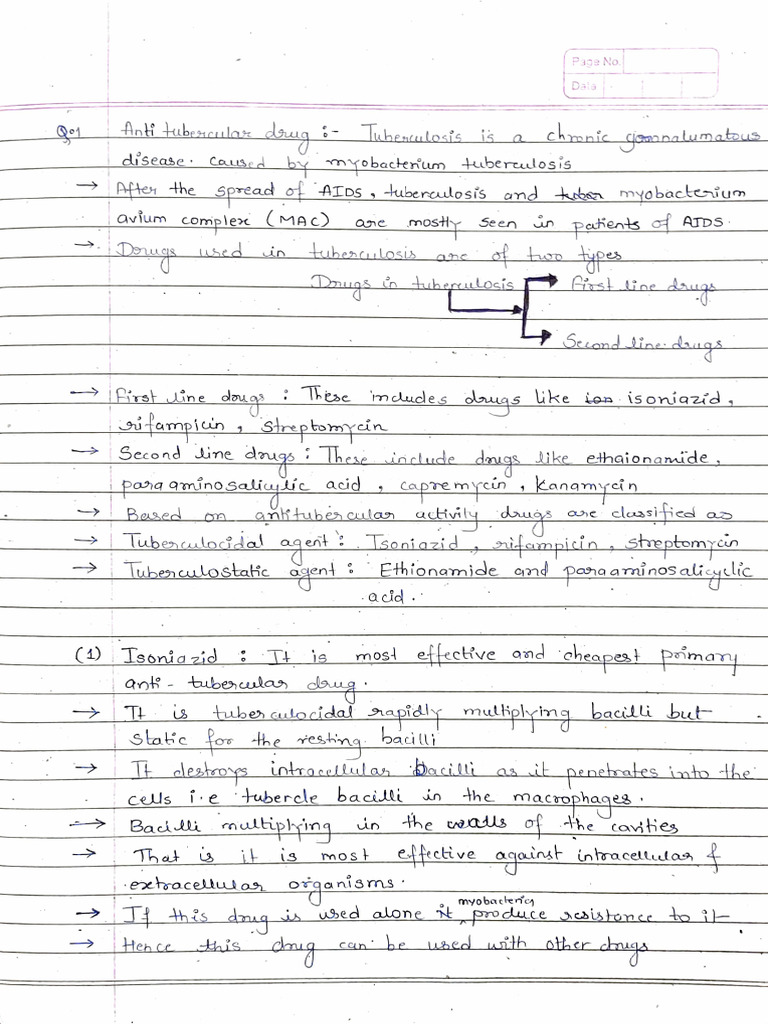 Page No.
Date
Q.1 Anti tubercular drug :- Tuberculosis is a chronic gronnalumatous
disease. caused by myobacterium tuberculosis
→ After the spread of AIDS, tuberculosis and myobacterium
avium complex (MAC) are mostly seen in patients of AIDS.
→ Drugs used in tuberculosis are of two types
Drugs in tuberculosis → First line drugs
→ Second line drugs
→ First line drugs : These includes drugs like isoniazid,
rifampicin, streptomycin
→ Second line drugs : These include drugs like ethaionamide,
para aminosalicylic acid, capremycin, kanamycin
→ Based on antitubercular activily drugs are classified as
→ Tuberculocidal agent : Isoniazid, rifampicin, streptomycin
→ Tuberculostatic agent : Ethionamide and paraaminosalicyclic
acid.
(1) Isoniazid : It is most effective and cheapest primary
anti - tubercular drug.
→ It is tuberculocidal rapidly multiplying bacilli but
static for the resting bacilli
→ It destroys intracellular bacilli as it penetrates into the
cells i.e tubercle bacilli in the macrophages.
→ Bacilli multiplying in the walls of the cavities
→ That is it is most effective against intracellular &
extracellular organisms.
→ If this drug is used alone myobacteria produce resistance to it
→ Hence this drug can be used with other drugs